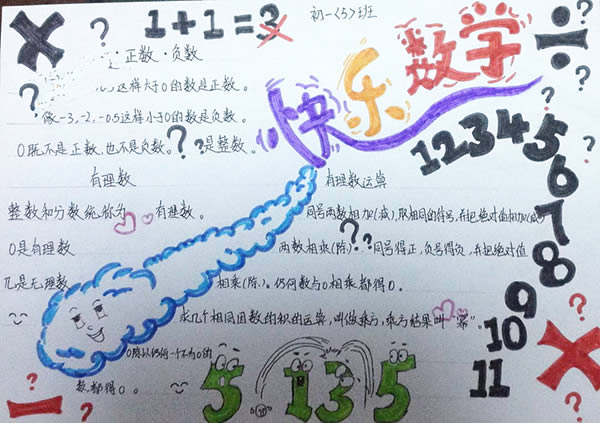 1+1=3
初一〈5〉班
正数·负数
快乐数学
这样大于0的数是正数。
像-3,-2,-0.5这样小于0的数是负数。
0既不是正数,也不是负数。?是整数。
有理数
整数和分数统称为 有理数。
0是有理数
π是无理数
有理数运算
同号两数相加(减),取相同的符号,并把绝对值相加(减)
两数相乘(除)。同号得正,负号得负,并把绝对值
相乘(除)。任何数与0相乘都得0。
求几个相同因数的积的运算,叫做乘方,乘方结果叫“幂”。
0除以任何一个不为0的
数都得0。
1 2 3 4 5
6
7
8
9
10
11
5 1 3 5